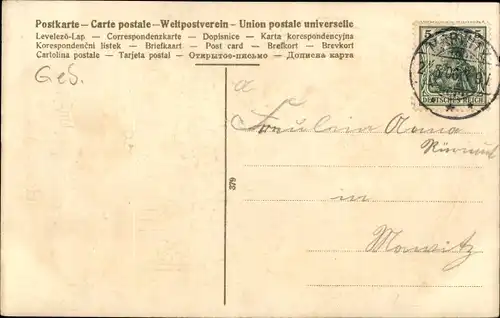 Postkarte – Carte postale – Weltpostverein – Union postale universelle
Levelező-Lap — Correspondenzkarte — Dopisnice — Karta korespondencyjna
Korespondenční listek — Briefkaart — Post card — Brefkort — Brevkort
Cartolina postale — Tarjeta postal — Открытое-письмо — Дописна карта
Ges.
5
DEUTSCHES REICH
Fräulein Anna
in
379